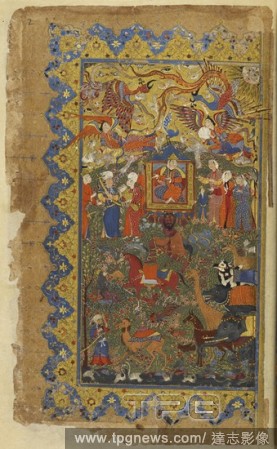 TPG
www.tpgnews.com / 達志影像